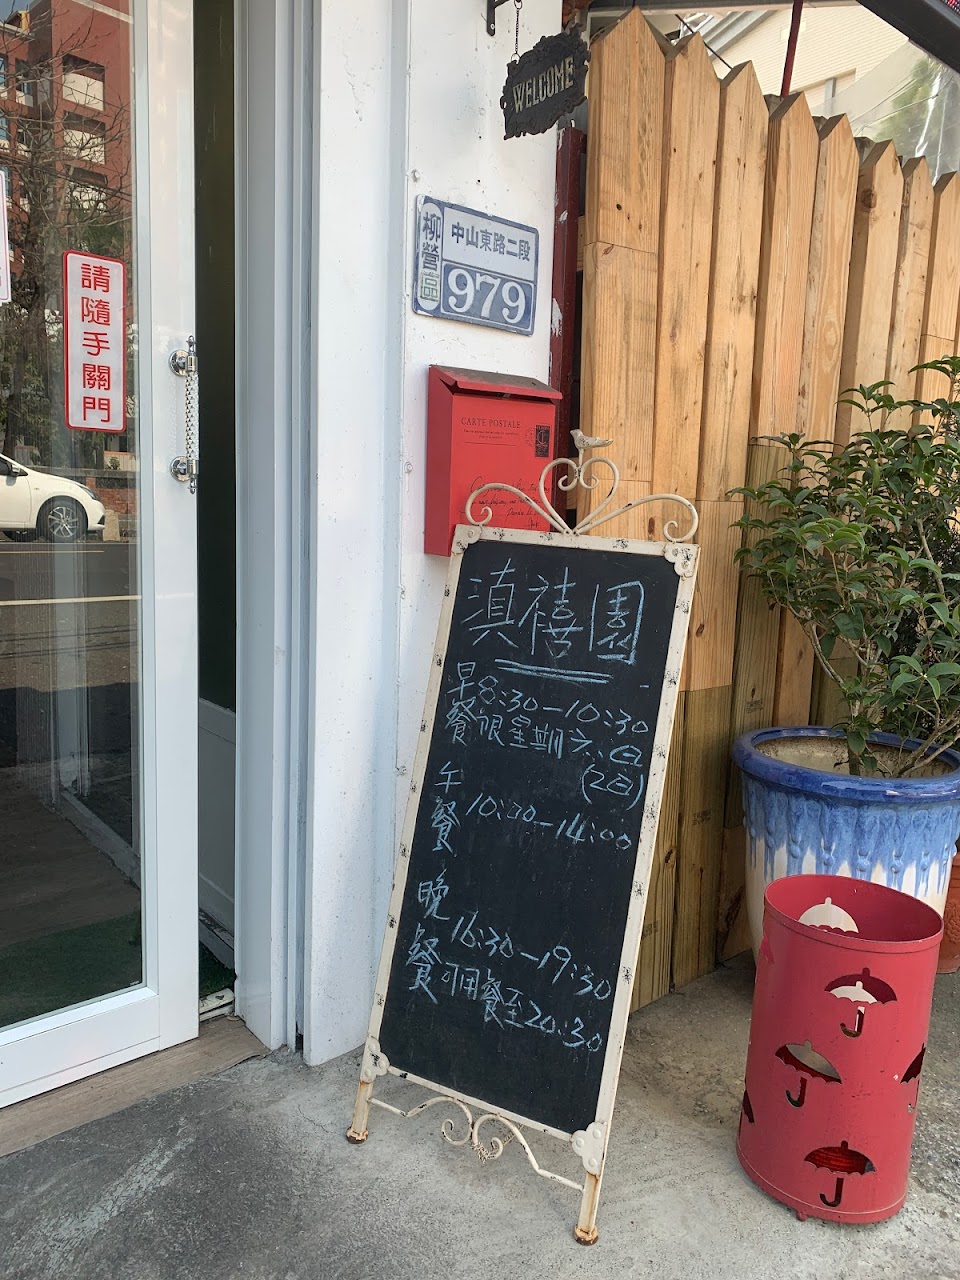 WELCOME
柳營區
中山東路二段
979
請隨手關門
CARTE POSTALE
滇禧園
早餐
8:30—10:30
限星期六、日
(2日)
午餐
10:30—14:00
晚餐
16:30—19:30
可用餐至20:30